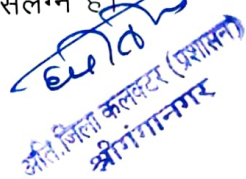 संलग्न है।
अति.जिला कलक्टर (प्रशासन)
श्रीगंगानगर